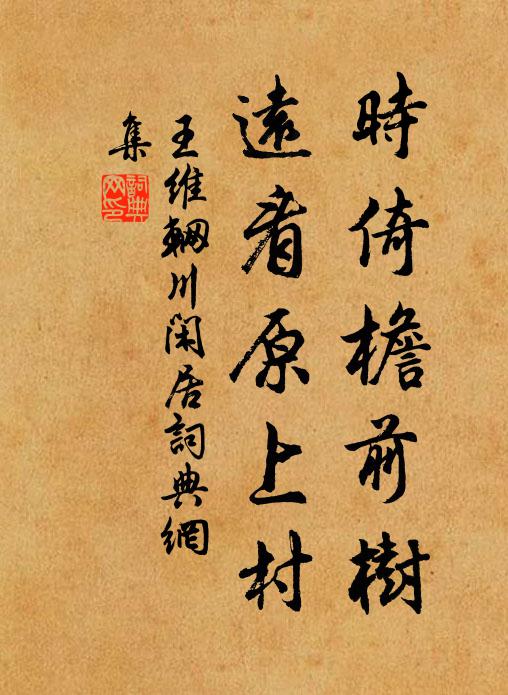 時倚檐前樹
遠看原上村
王維輞川閑居詞典網
集
詞典
网印